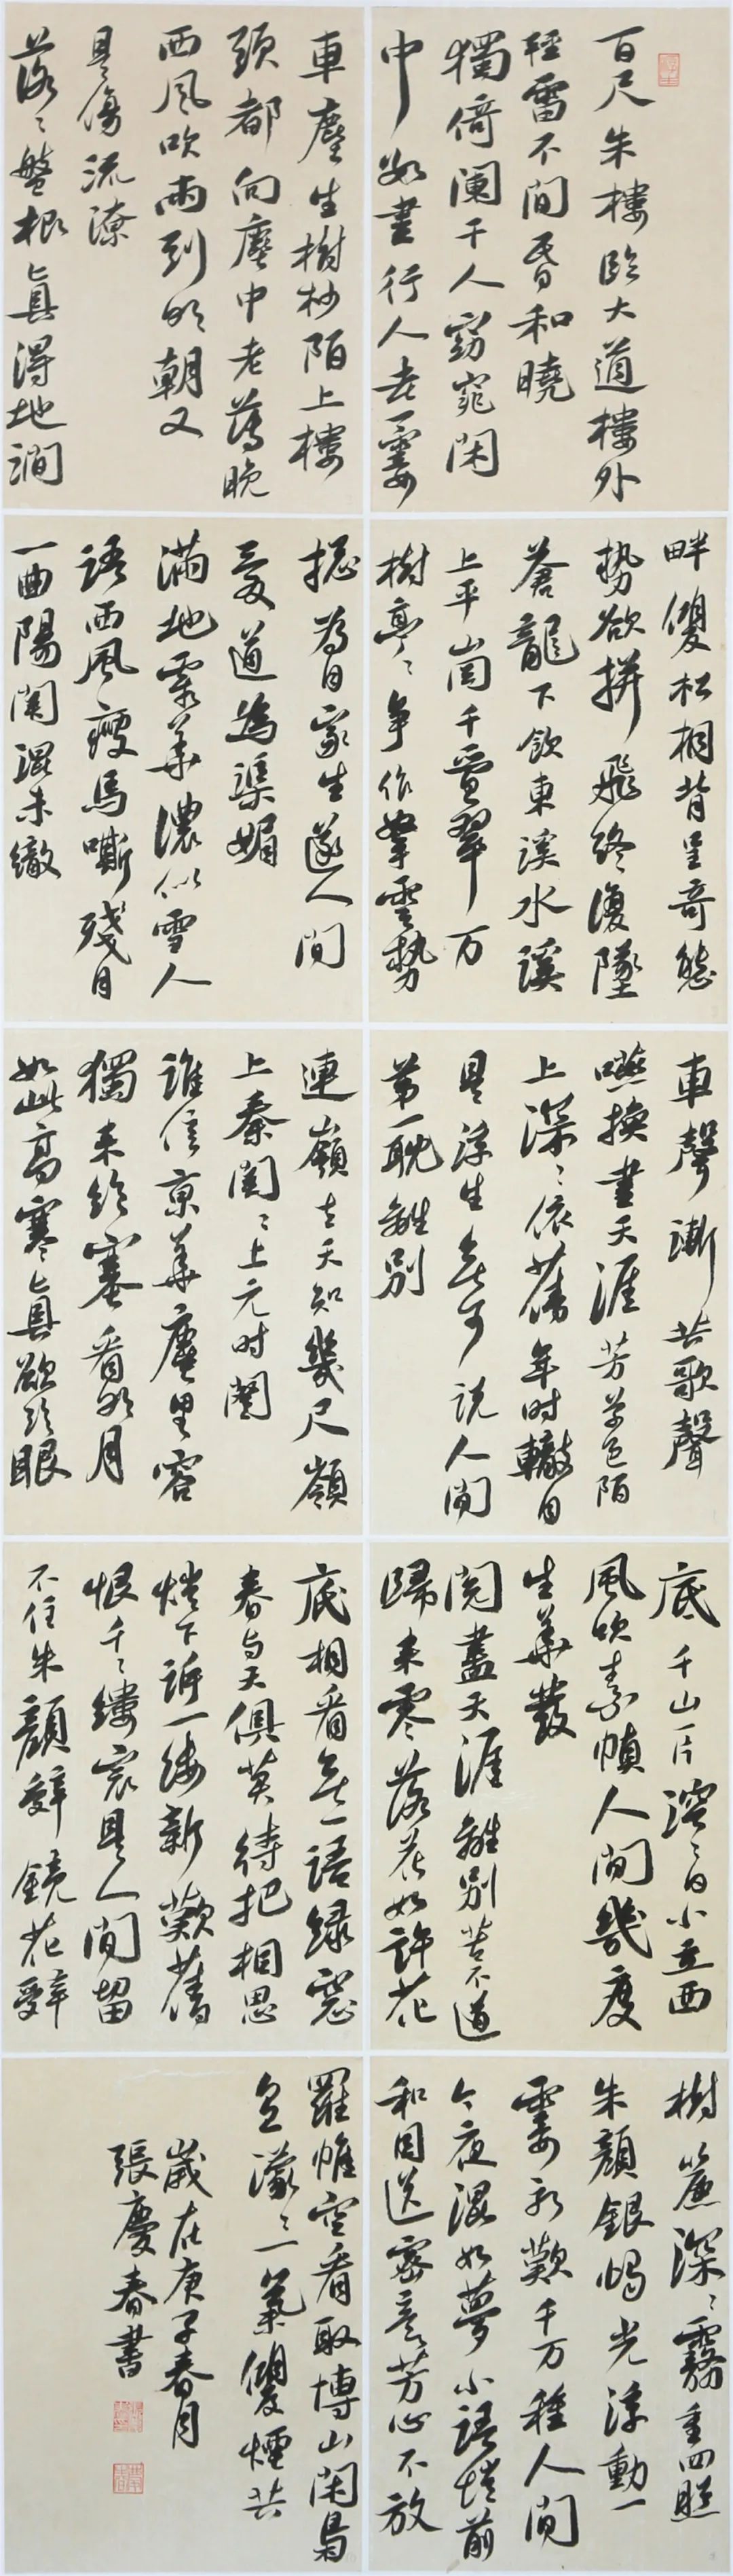 百尺朱樓臨大道樓外
輕雷不間昏和曉
獨倚闌干人窈窕閑
中數盡行人去一霎
車塵生樹杪陌上樓
頭都向塵中老薄晚
西風吹雨到明朝又
是傷流潦
落々盤根真得地澗
畔雙松相背呈奇態
勢欲拚飛終復墜
蒼龍下飲東溪水溪
上平崗千疊翠万
樹亭々爭作拏雲勢
總為自家生遂人間
愛道為渠媚
滿地霜華濃似雪人
語西風瘦馬嘶殘月
一曲陽關渾未徹
車聲漸共歌聲
咽換盡天涯芳草色陌
上深々依舊年時轍自
是浮生無可說人間
第一耽離別
連嶺去天知幾尺嶺
上秦關々上元時闕
誰信京華塵里客
獨來絕塞看明月
如此高寒真欲絕眼
底千山一片溶々白小立西
風吹素幘人間幾度
生華髮
閱盡天涯離別苦不道
歸來零落花如許花
底相看無一語綠窗
春與天俱莫待把相思
燈下訴一縷新歡舊
恨千々縷最是人間留
不住朱顏辭鏡花辭
樹簾深々霧重四照
朱顏銀燭光浮動一
霎新歡千万種人間
今夜渾如夢小語燈前
和目送密意芳心不放
羅帷空看取博山閑裊
處濛々一氣雙煙共
歲在庚子春月
張慶春書